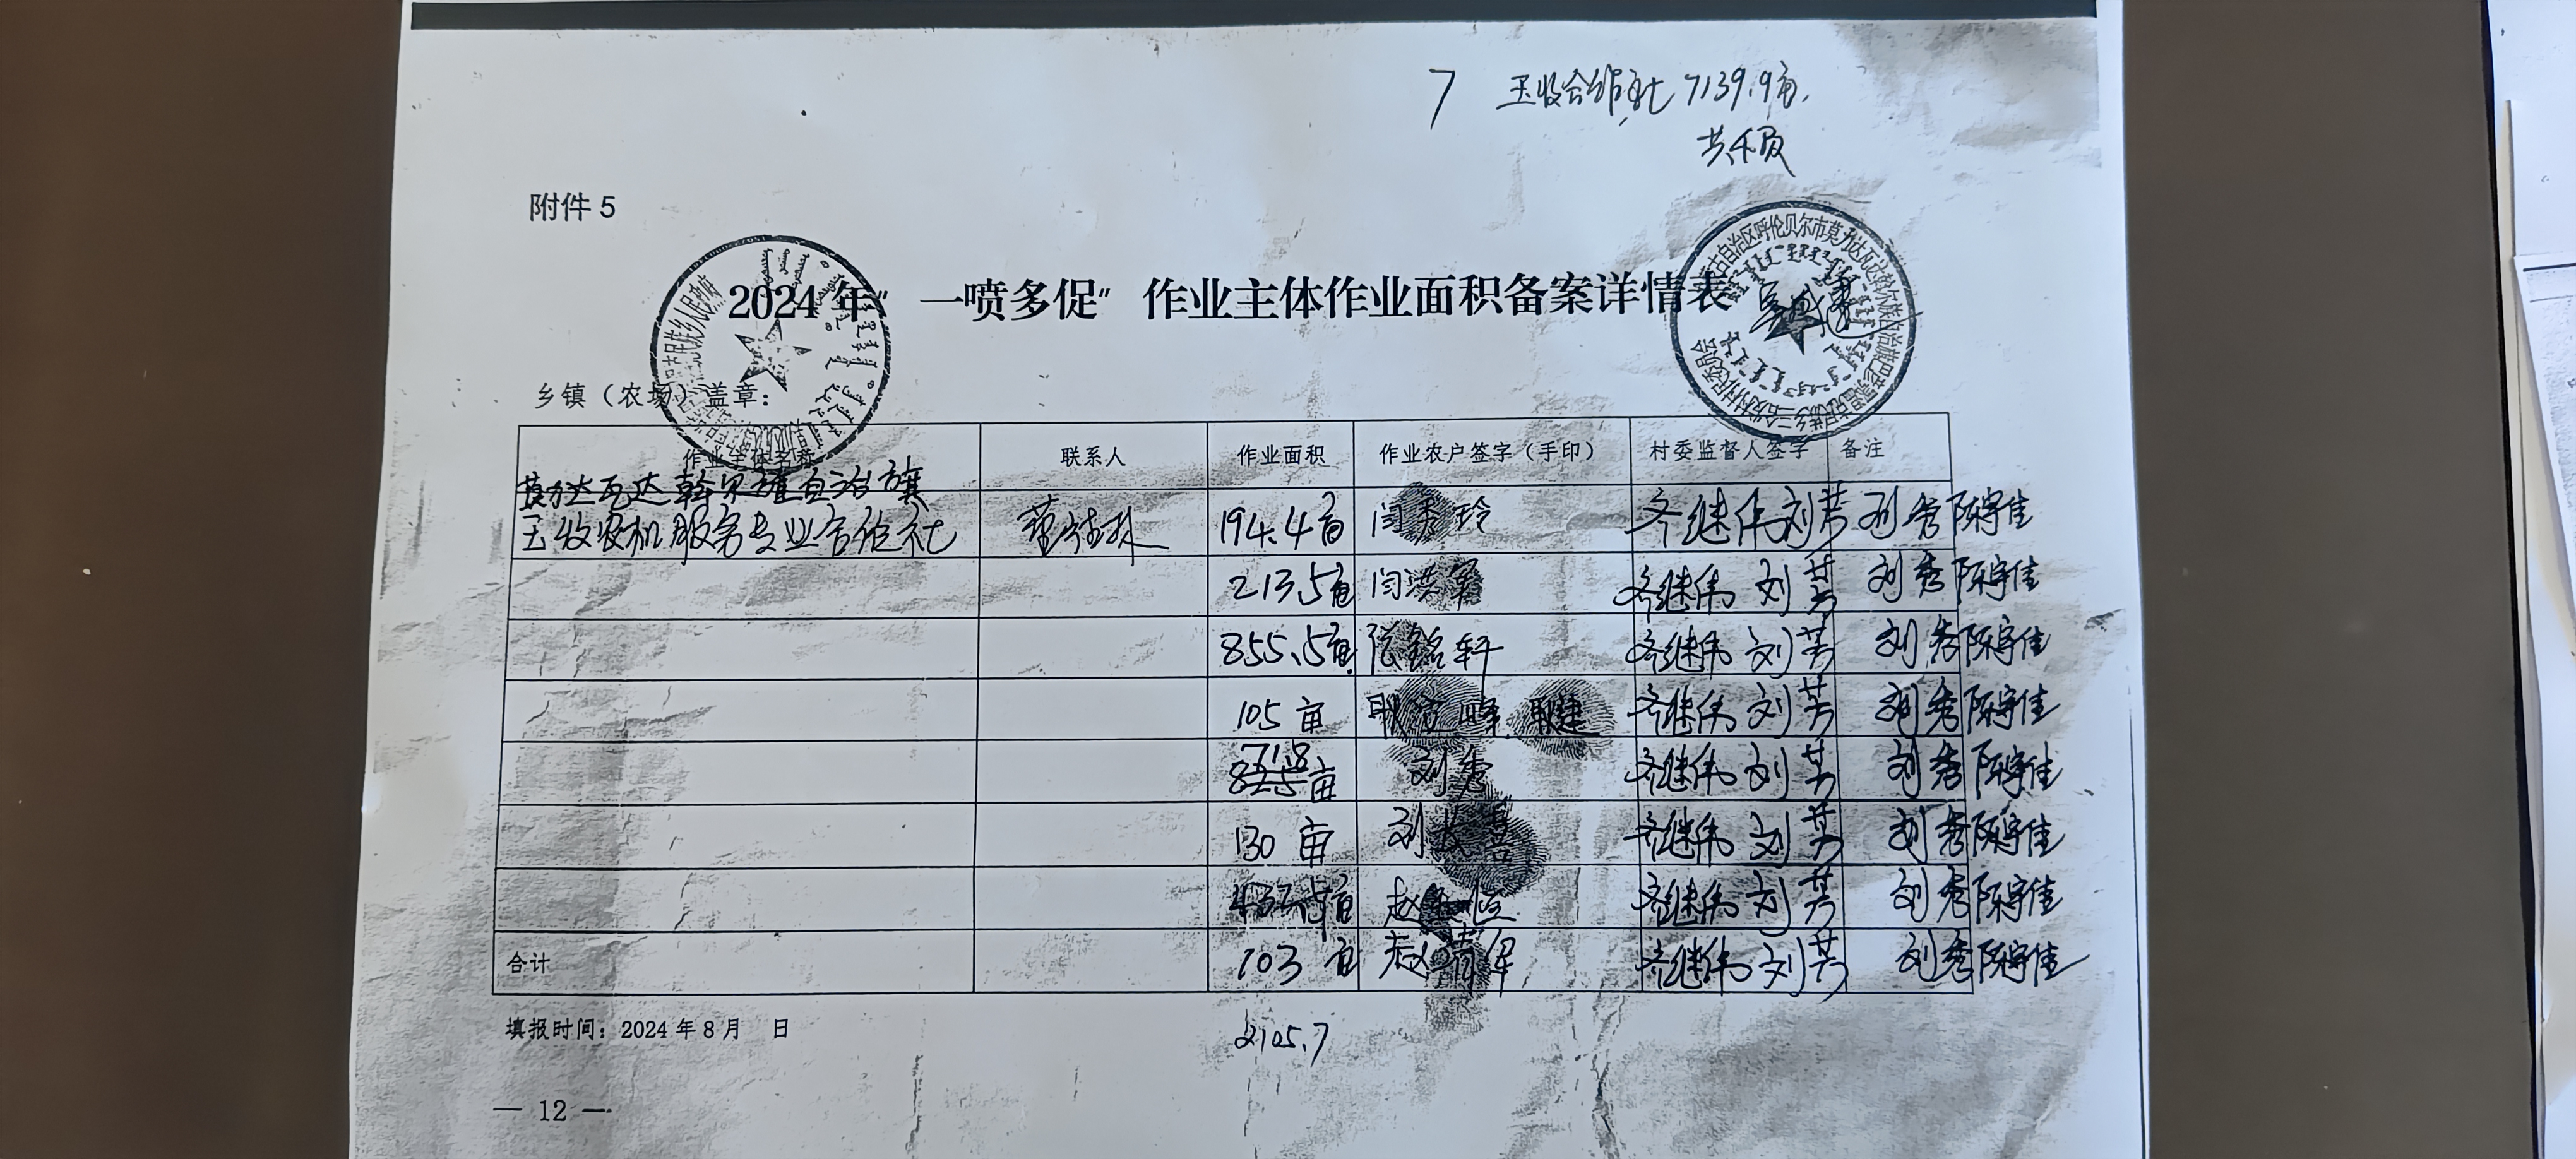 7 玉收合作社 7139.9亩.
共不符
附件 5
2024 年“一喷多促”作业主体作业面积备案详情表
乡镇（农场）盖章：
作业主体名称 联系人 作业面积 作业农户签字（手印） 村委监督人签字 备注
莫力达瓦达斡尔族自治旗
玉收农机服务专业合作社 194.4亩 闫秀玲 齐继伟 刘芳 刘秀 陈宇佳
213.5亩 闫洪军 齐继伟 刘芳 刘秀 陈宇佳
855.5亩 张铭轩 齐继伟 刘芳 刘秀 陈宇佳
105亩 齐继伟 刘芳 刘秀 陈宇佳
71.8
825亩 刘秀 齐继伟 刘芳 刘秀 陈宇佳
130亩 刘长喜 齐继伟 刘芳 刘秀 陈宇佳
亩 齐继伟 刘芳 刘秀 陈宇佳
合计 103亩 齐继伟 刘芳 刘秀 陈宇佳
填报时间：2024 年 8 月 日
2105.7
— 12 —